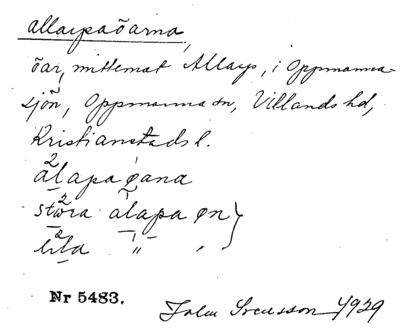 allarpaöarna
öar, mittemot Allarp, i Oppmanna-
sjön, Oppmanna sn, Villands hd,
Kristianstads l.
álapaøana
stora álapaøn }
lila " "
Nr 5483.
John Svensson 1929